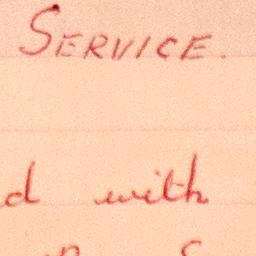 SERVICE.
d with